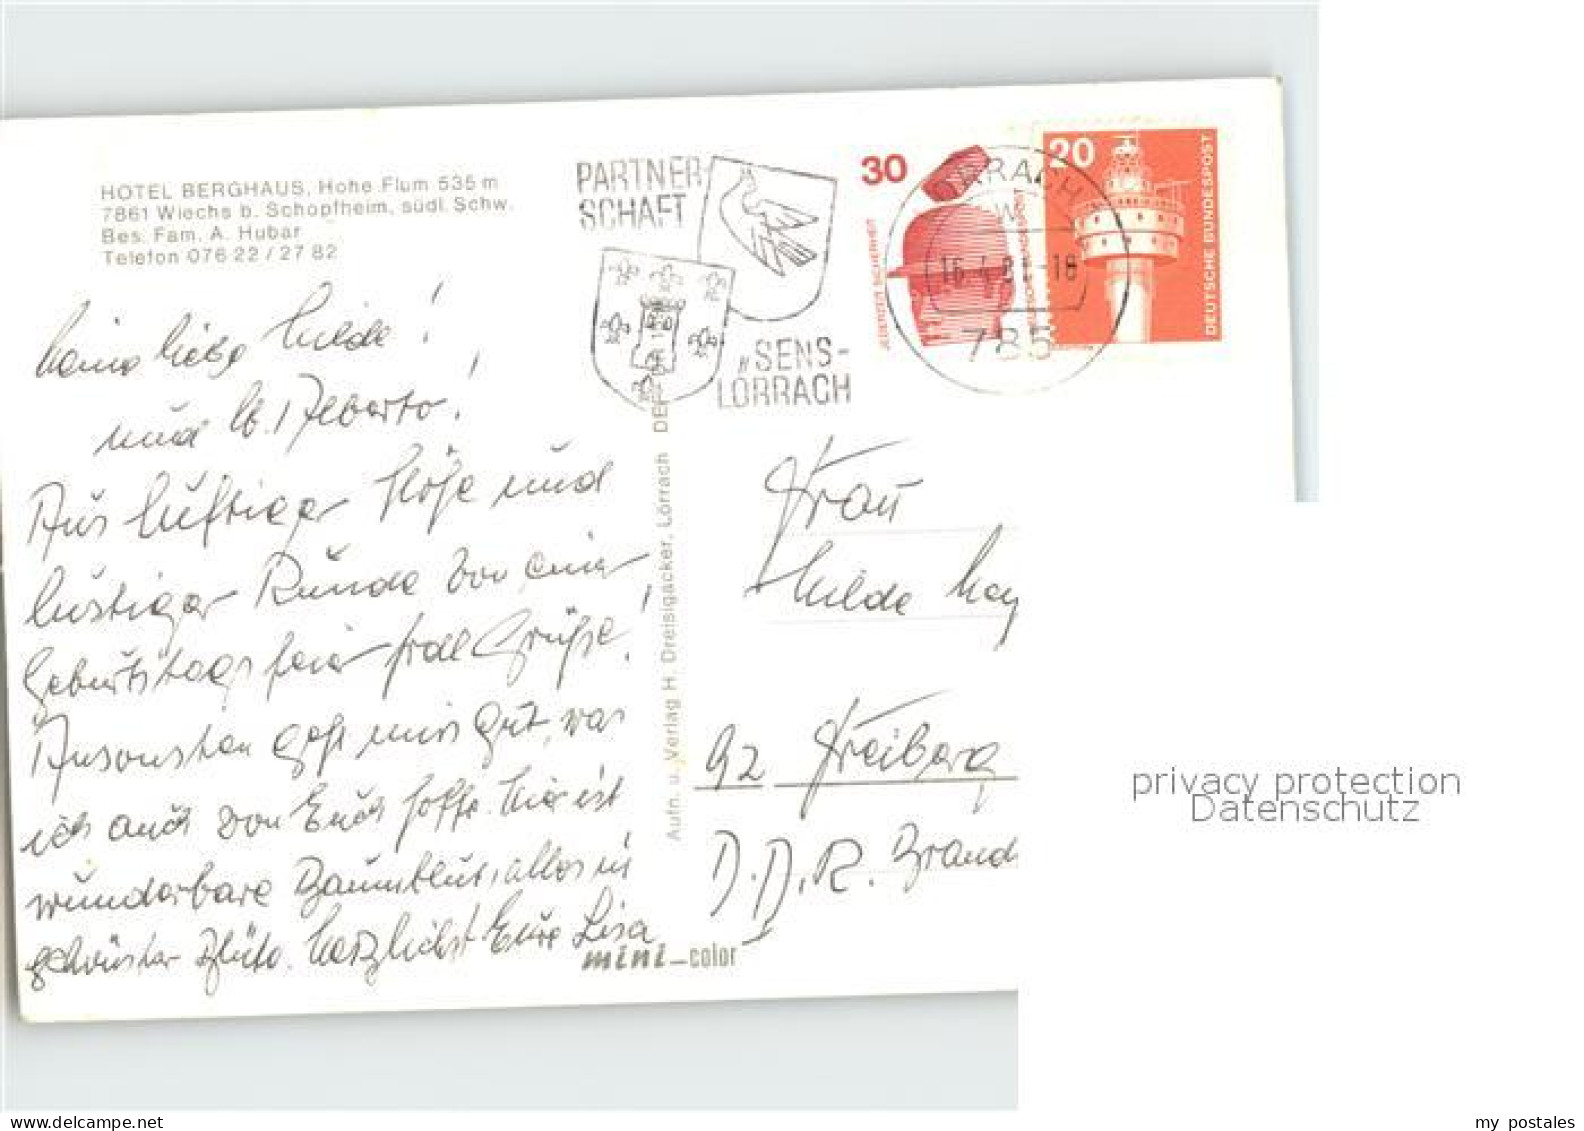 HOTEL BERGHAUS, Hohe Flum 535 m
7861 Wiechs b. Schopfheim, südl. Schw.
Bes. Fam. A. Hubar
Telefon 076 22 / 27 82
PARTNER
SCHAFT
SENS-
LÖRRACH
30
JEDERZEIT SICHERHEIT
20
DEUTSCHE BUNDESPOST
785
Meine liebe Hilde!
und lb. Alberto!
Aus luftiger Höhe und
lustiger Runde von einer
Geburtstagsfeier frdl Grüße!
Ansonsten geht mirs gut, was
ich auch von Euch hoffe. Hier ist
wunderbare Baumblut, alles in
schönster Blüte. Herzlichst Eure Lisa
Aufn. u. Verlag H. Dreisigacker, Lörrach
mini-color
Frau
Hilde May
92 Freiberg
D.D.R. Brand
privacy protection
Datenschutz
my postales